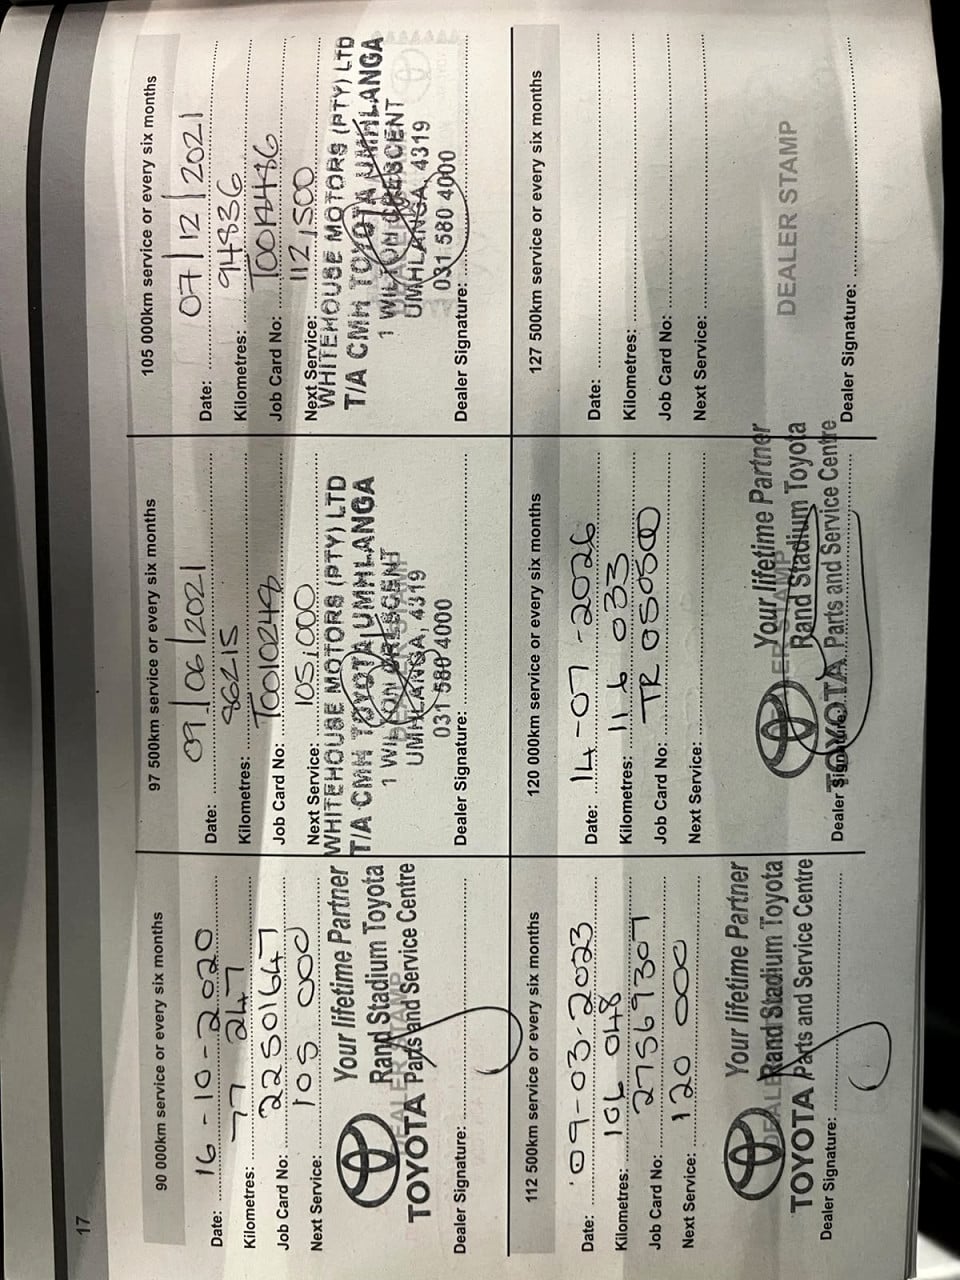 17
90 000km service or every six months
Date: 16-10-2020
Kilometres: 77 247
Job Card No: 22501647
Next Service: 105 000
Your lifetime Partner
Rand Stadium Toyota
TOYOTA Parts and Service Centre
DEALER STAMP
Dealer Signature:
97 500km service or every six months
Date: 09/06/2021
Kilometres: 86215
Job Card No: T0010248
Next Service: 105,000
WHITEHOUSE MOTORS (PTY) LTD
T/A CMH TOYOTA UMHLANGA
1 WILTON CRESCENT
UMHLANGA, 4319
031 580 4000
Dealer Signature:
105 000km service or every six months
Date: 07/12/2021
Kilometres: 94836
Job Card No: T0014486
Next Service: 112,500
WHITEHOUSE MOTORS (PTY) LTD
T/A CMH TOYOTA UMHLANGA
1 WILTON CRESCENT
UMHLANGA, 4319
031 580 4000
Dealer Signature:
112 500km service or every six months
Date: 09-03-2023
Kilometres: 106 048
Job Card No: 27569307
Next Service: 120 000
Your lifetime Partner
Rand Stadium Toyota
TOYOTA Parts and Service Centre
Dealer Signature:
120 000km service or every six months
Date: 14-07-2026
Kilometres: 116 033
Job Card No: TR050500
Next Service:
Your lifetime Partner
Rand Stadium Toyota
TOYOTA Parts and Service Centre
Dealer Signature:
127 500km service or every six months
Date:
Kilometres:
Job Card No:
Next Service:
DEALER STAMP
Dealer Signature: